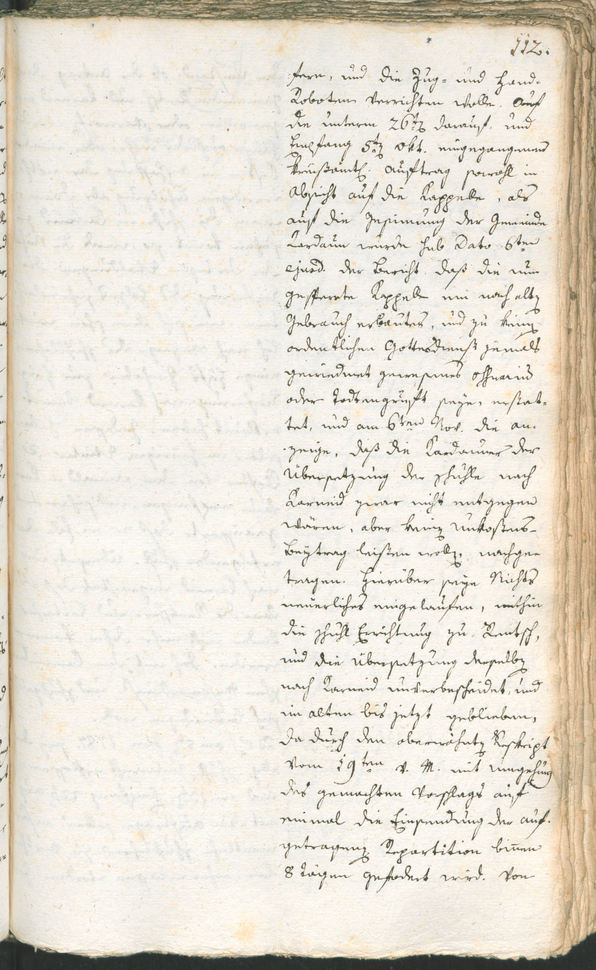 112.
fern, und die Zug- und Hand-
Roboten verrichten wolle. Auf
die unterm 26ten darauf, und
Empfang 5ten Okt. eingegangenen
Kreisämtl. Auftrag sowohl in
Absicht auf die Kappelle, als
auf die Gesinnung der Gemeinde
Kardaun wurde sub Dato 6ten
ejusd. der Bericht, daß die nun
gesperrte Kappelle ein nach altem
Gebrauch erbautes, und zu keinem
ordentlichen Gottesdienst jemals
gewiedmet gewesenes
oder Todtengruft seye, erstat-
tet, und am 6ten Nov. die an-
zeige, daß die Kardauner der
Übersetzung der Schulle nach
Karneid zwar nicht entgegen
wären, aber keinen Unkostens-
Beytrag leisten wollen, nachge-
tragen. Hierüber seye Nichts
neuerliches eingelaufen, mithin
die Schull Errichtung zu Rentsch,
und die Übersetzung derselben
nach Karneid unverbescheidet, und
im alten bis jetzt geblieben,
da durch den oberwähnten Reskript
vom 19ten v. M. mit umgehung
des gemachten Vorschlags auf
einmal die Einsendung der auf-
getragenen Repartition binnen
8 Tägen gefodert wird. Von